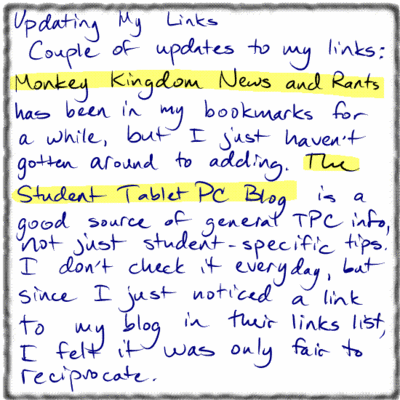 Updating My Links
Couple of updates to my links:
Monkey Kingdom News and Rants
has been in my bookmarks for
a while, but I just haven't
gotten around to adding. The
Student Tablet PC Blog is a
good source of general TPC info,
not just student-specific tips.
I don't check it everyday, but
since I just noticed a link
to my blog in their links list,
I felt it was only fair to
reciprocate.